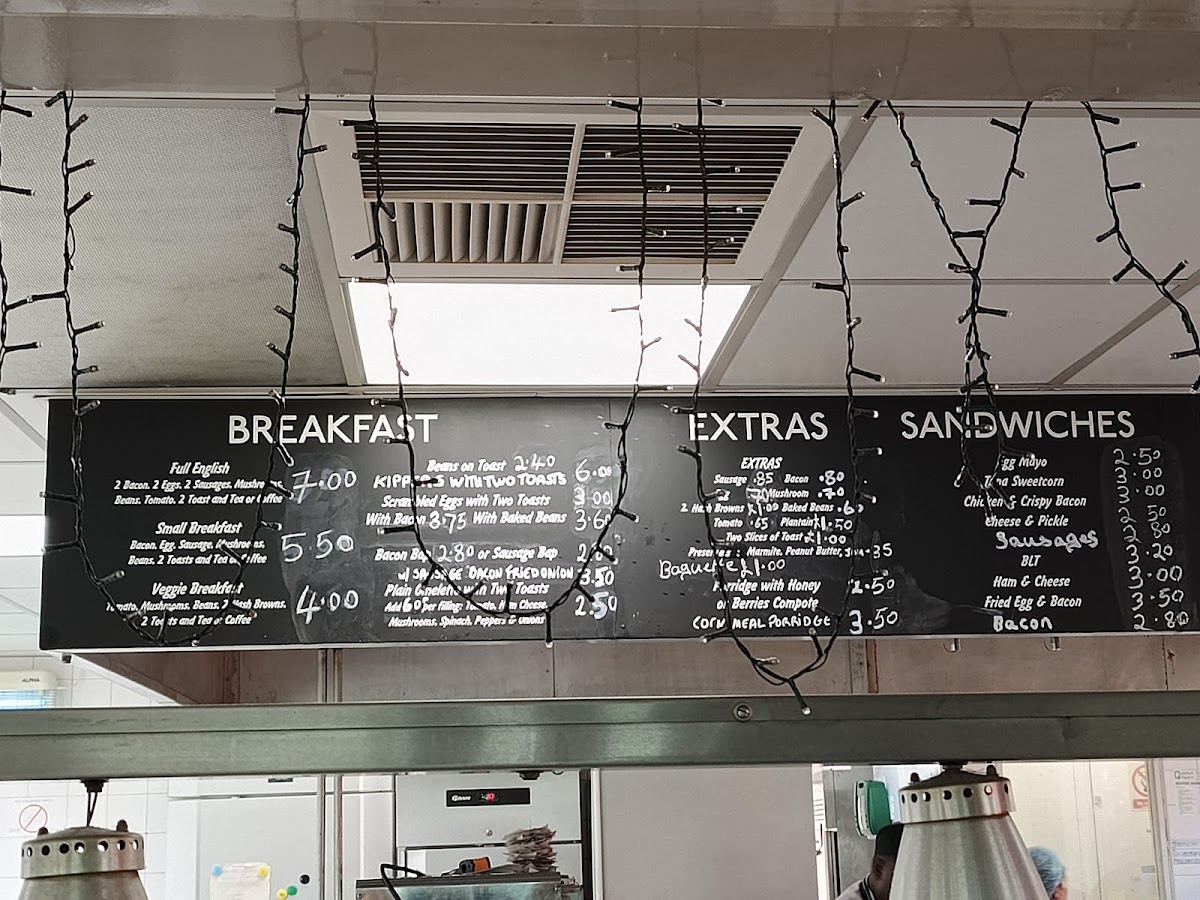 BREAKFAST
Full English
2 Bacon, 2 Eggs, 2 Sausages,
Beans, Tomato, 2 Toast and Tea or Coffee
7.00
Small Breakfast
Bacon, Egg, Sausage, Mushrooms,
Beans, 2 Toasts and Tea or Coffee
5.50
Veggie Breakfast
Tomato, Mushrooms, Beans, 2 Hash Browns,
2 Toasts and Tea or Coffee
4.00
Beans on Toast 2.40
KIPPERS WITH TWO TOASTS 6.00
Scrambled Eggs with Two Toasts 3.00
With Bacon 3.75 With Baked Beans
Bacon Bap 2.80 or Sausage Bap
W/ SAUSAGE BACON FRIED ONION 3.50
Plain Omelette with Two Toasts 2.50
Add 60 per filling: Tomato, Ham, Cheese,
Mushrooms, Spinach, Peppers & onions
EXTRAS
EXTRAS
Sausage .85 Bacon .80
.70 Mushroom .70
2 Hash Browns £1.00 Baked Beans
Tomato .65 Plantain £1.50
Two Slices of Toast £1.00
Preserves: Marmite, Peanut Butter, Jam .35
Baguette £1.00
Porridge with Honey 2.50
or Berries Compote
CORN MEAL PORRIDGE 3.50
SANDWICHES
Egg Mayo 2.50
Tuna Sweetcorn 3.00
Chicken & Crispy Bacon 3.00
Cheese & Pickle
Sausages 2.80
BLT 3.20
Ham & Cheese 3.00
Fried Egg & Bacon 3.50
Bacon 2.80
ALPHA
Gram